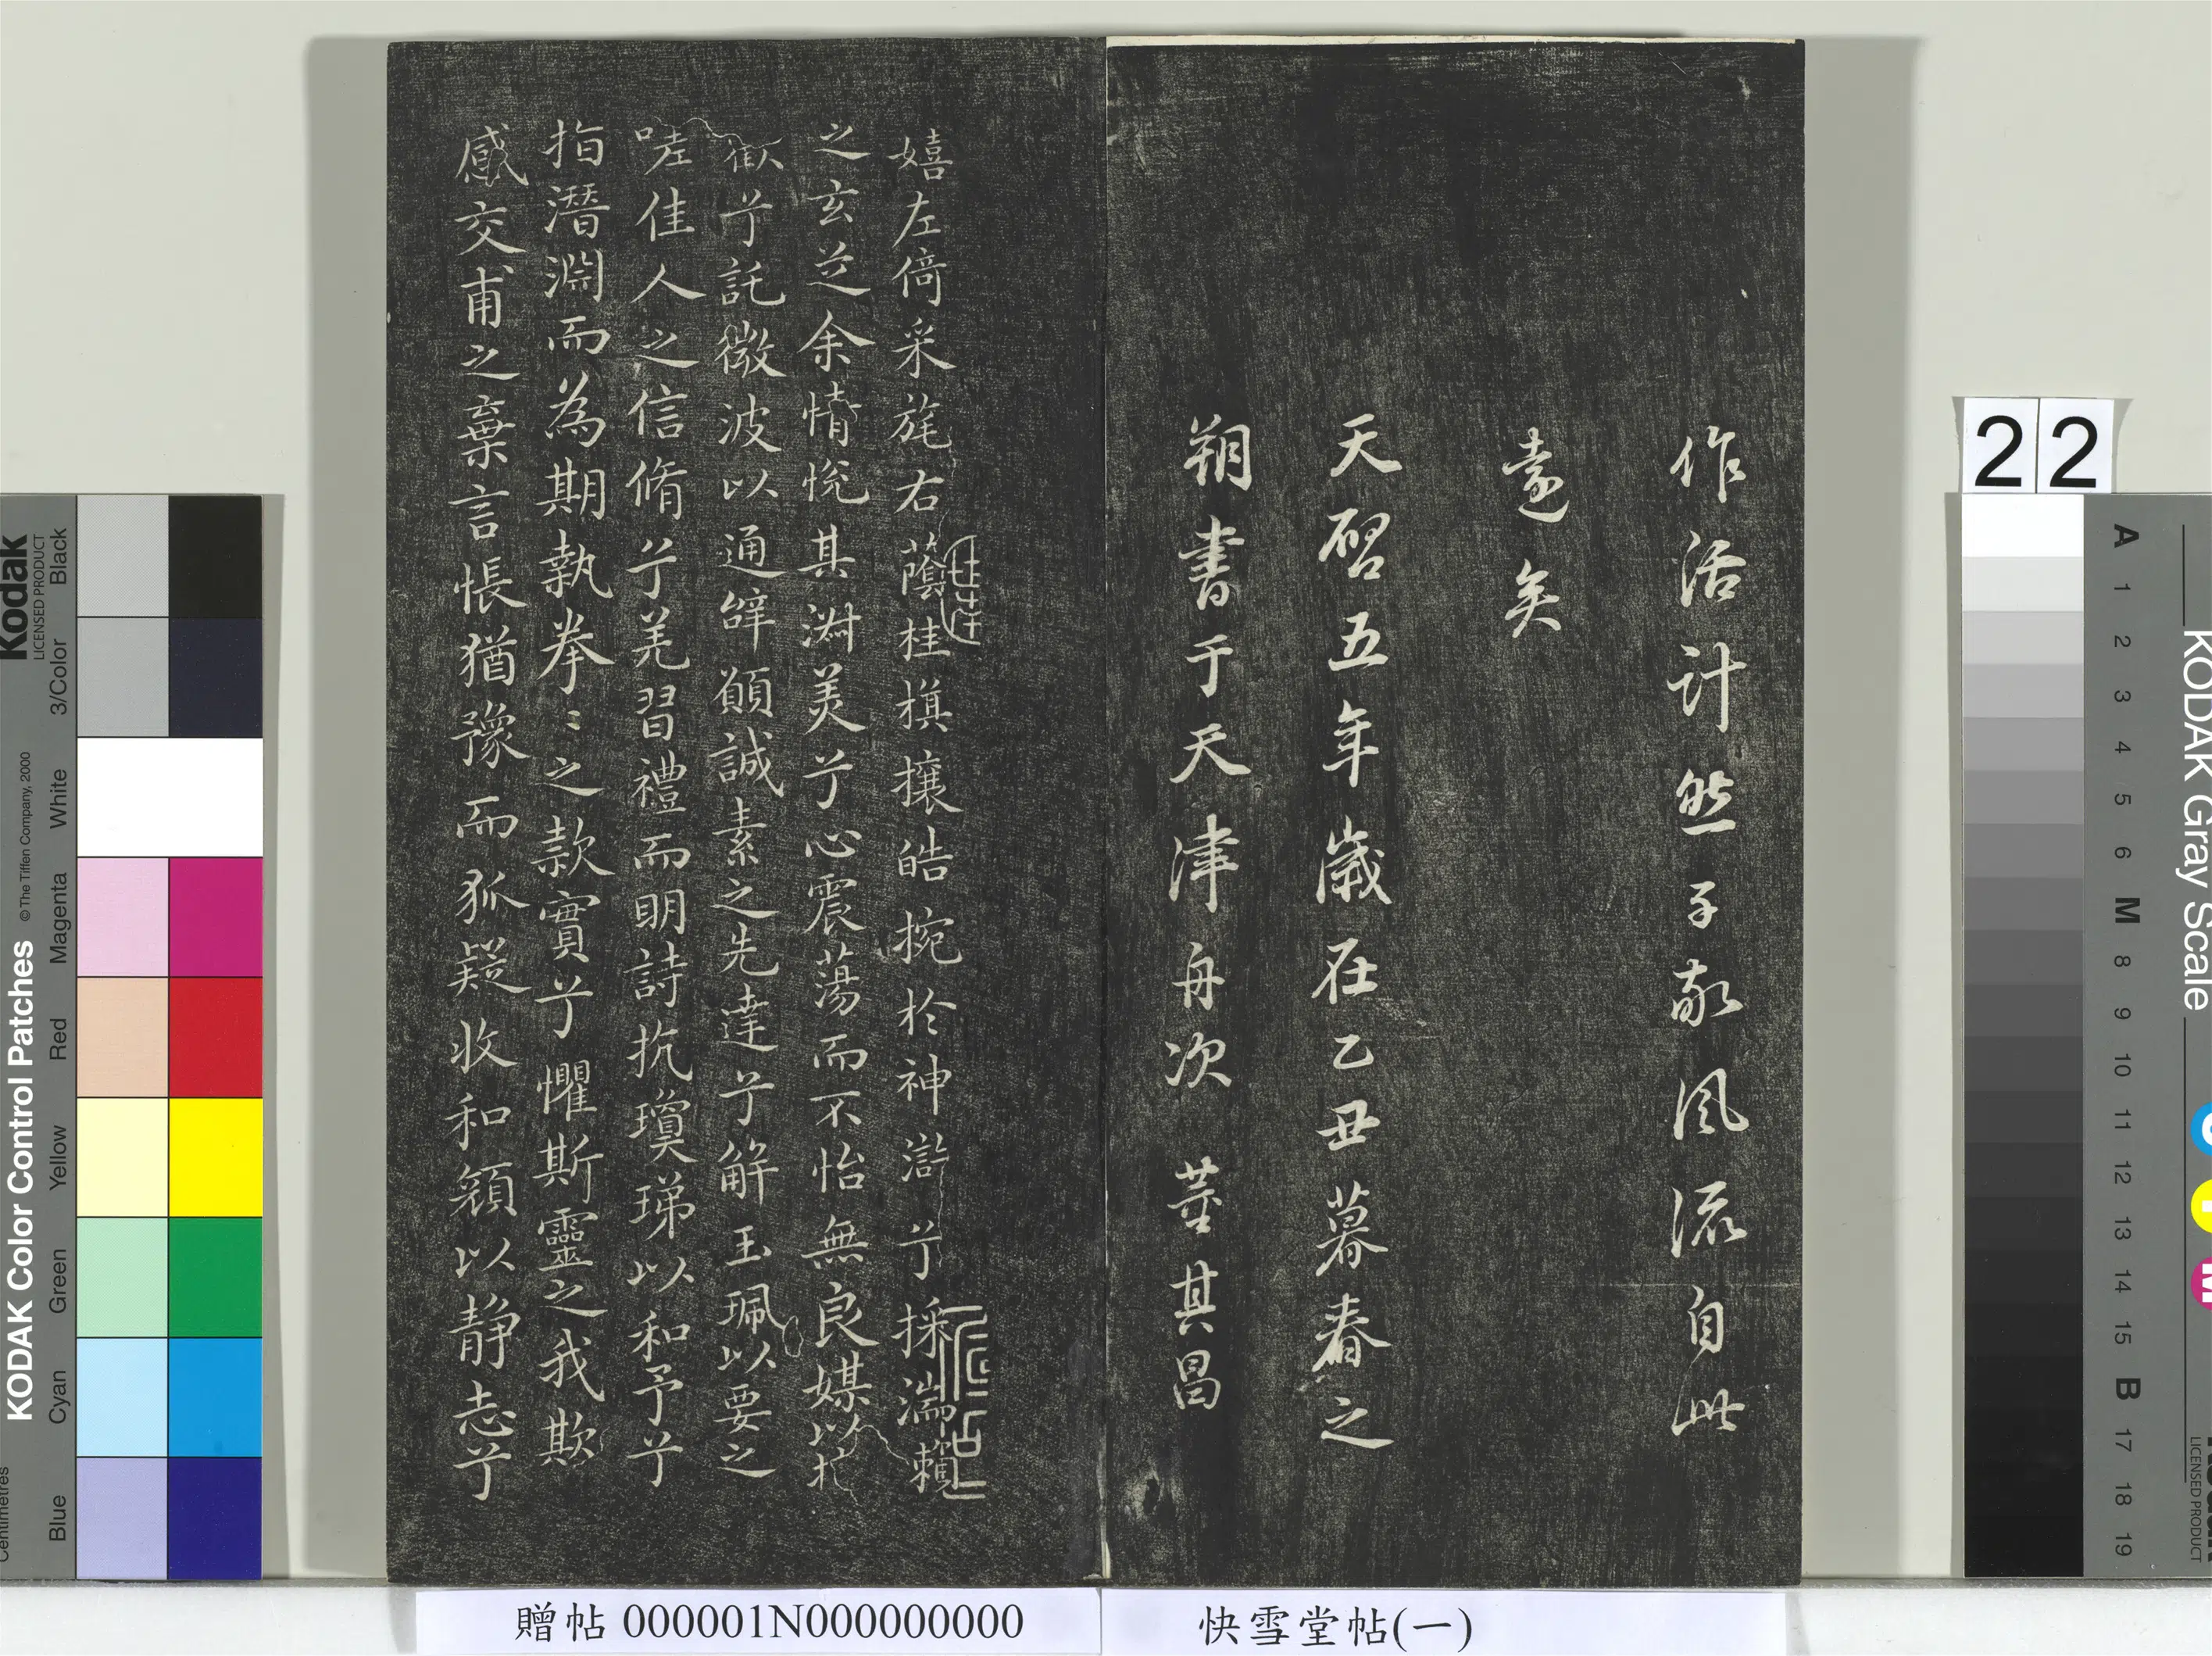 作活计然子敬风流自此
远矣
天启五年歲在乙丑暮春之
朔書于天津舟次 董其昌
嬉左倚采旄右蔭桂旗攘皓捥於神滸兮採湍瀨
之玄芝余情悅其淋美兮心震蕩而不怡無良媒以
歡兮託微波以通辞願誠素之先達兮解玉珮以要之
嗟佳人之信脩兮羌習禮而明詩抗瓊珶以和予兮
指潛淵而為期執拳〻之款實兮懼斯靈之我欺
感交甫之棄言悵猶豫而狐疑收和顏以静志兮
贈帖 000001N000000000
快雪堂帖(一)
22
Kodak
LICENSED PRODUCT
KODAK Color Control Patches
© The Tiffen Company, 2000
Blue Cyan Green Yellow Red Magenta White 3/Color Black
KODAK Gray Scale
A 1 2 3 4 5 6 M 8 9 10 11 12 13 14 15 B 17 18 19